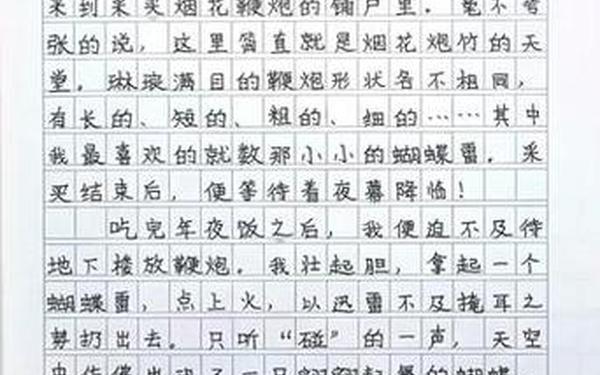 来到采买烟花鞭炮的铺户里。毫不夸
张的说，这里简直就是烟花炮竹的天
堂。琳琅满目的鞭炮形状各不相同，
有长的、短的、粗的、细的……其中
我最喜欢的就数那小小的蝴蝶雷。采
买结束后，便等待着夜幕降临！
吃完年夜饭之后，我便迫不及待
地下楼放鞭炮。我壮起胆，拿起一个
蝴蝶雷，点上火，以迅雷不及掩耳之
势扔出去。只听“碰”的一声，天空
中仿佛出现了一只翩翩起舞的蝴蝶